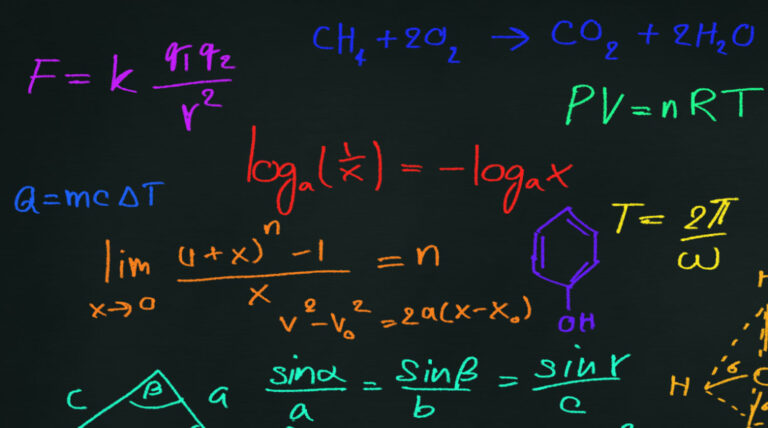 CH₄ + 2O₂ → CO₂ + 2H₂O
F = k q₁q₂ / r²
PV = nRT
logₐ(1/x) = -logₐx
Q = mcΔT
T = 2π / ω
lim x→0 ((1+x)ⁿ - 1) / x = n
v² - v₀² = 2a(x-x₀)
OH
H
sinα / a = sinβ / b = sinγ / c
c β a
H C